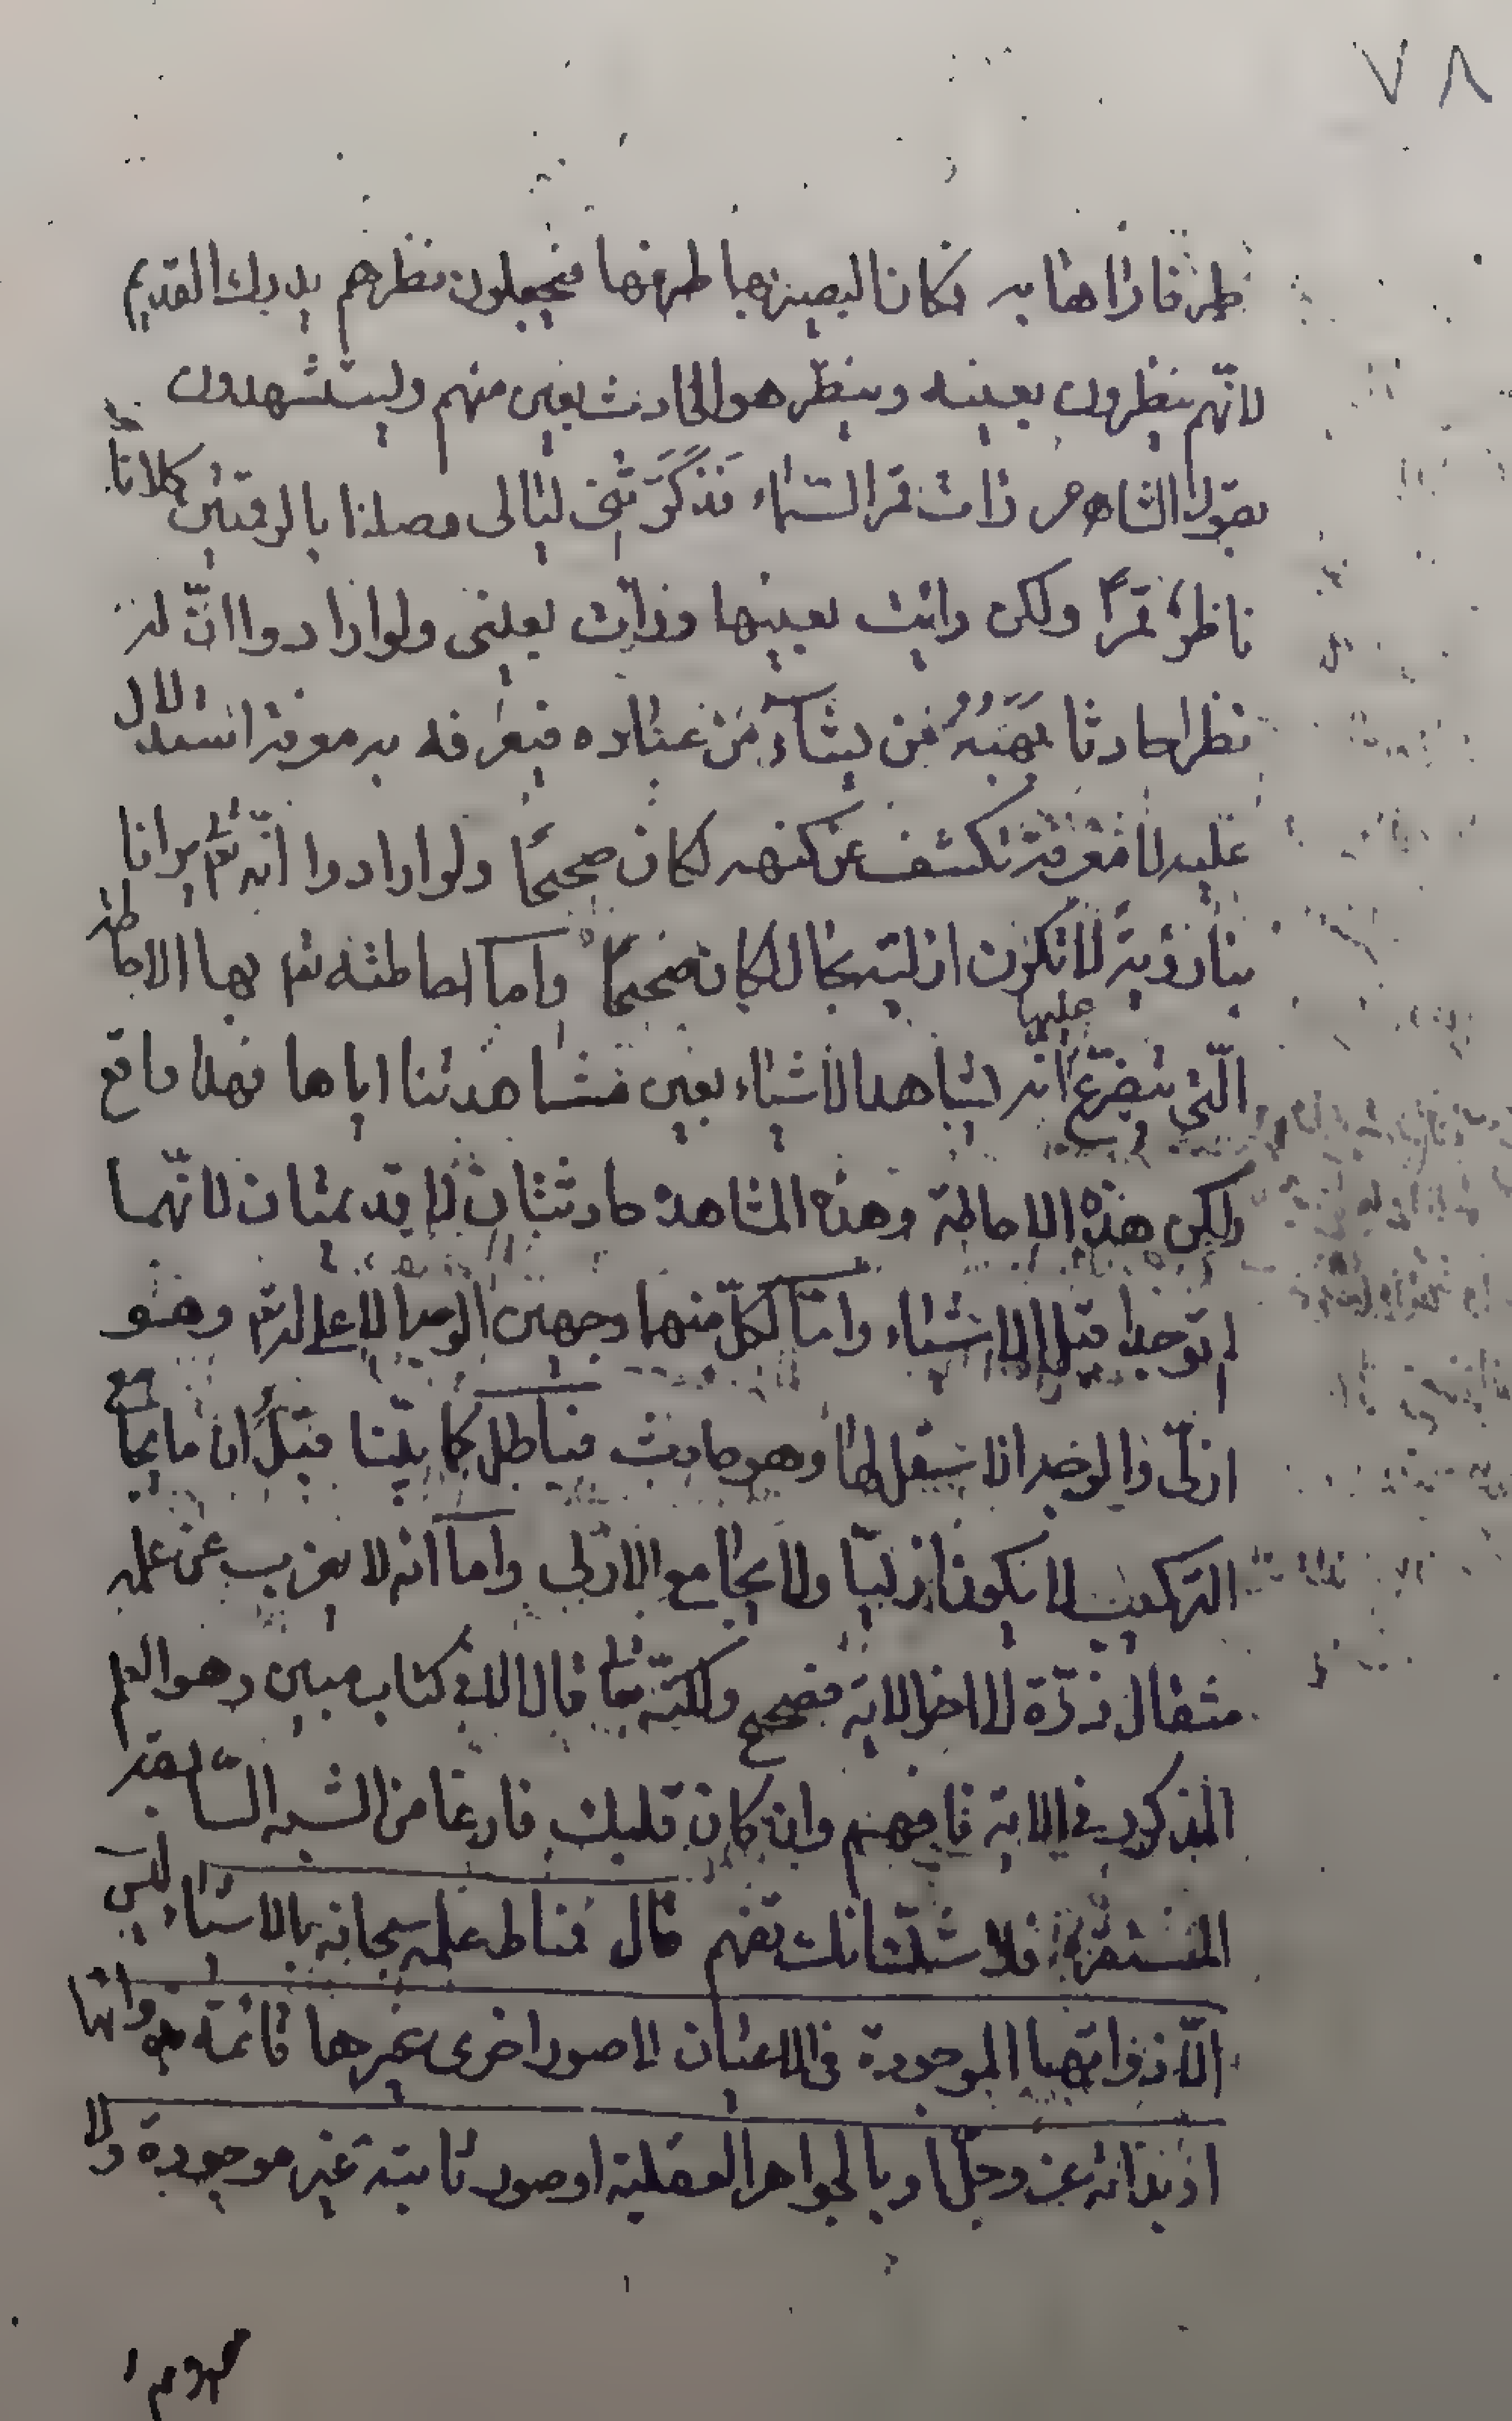 ٧٨
طرفا راها به فكان البصير بها طرفها فيجعلون نظرهم يدرك القديم
لانّهم ينظرون بعينه وينظر هو الحادث بعين منهم وليستشهدون
بقول الشاعر رات قمر السماء فذكّرتني ليالي وصلنا بالرقمتين كلانا
ناظر قمرًا ولكن رايت بعينها ورأت بعيني ولو ارادوا انّ له
نظرا حادثا يهبه من يشاء من عباده فيعرفه به معرفة استدلال
عليه لا معرفة تكشف عن كنهه لكان صحيحًا ولو ارادوا انّه تعالى يرانا
بنا رؤية لا تكون ازلية بحال لكان صحيحًا واما احاطته تعا بها الاحاطة
الّتي يتفرّع عليها انه يشاهد الاشياء بعين مشاهدتنا اياها فهذا واقع
ولكن هذه الاحاطة وهذه المشاهدة حادثتان لا قديمتان لانّهما
لم توجدا قبل الاشياء وامّا لكلّ منهما وجهين الوجه الاعلى له تعا وهو
ازلّي والوجه الاسفل لها وهو حادث فباطل كما بيّنا قبل ان ما يجامع
التركيب لا يكون ازليّا ولا يجامع الازلي واما انه لا يعزب عن علمه
مثقال ذرّة الى اخر الاية فصحيح ولكنّه تعا قال الا في كتاب مبين وهو العلم
المذكور في الاية فافهم وان كان قلبك فارغا من الشبه السابقة
المستقرّة فلا شك انك تفهم قال فمناط علمه سبحانه بالاشياء ليس
الّا ذواتها الموجودة في الاعيان لا صور اخرى غيرها قائمة بذواتها
او بذاته عز وجل او بالجواهر العقلية او صور ثابتة غير موجودة ولا